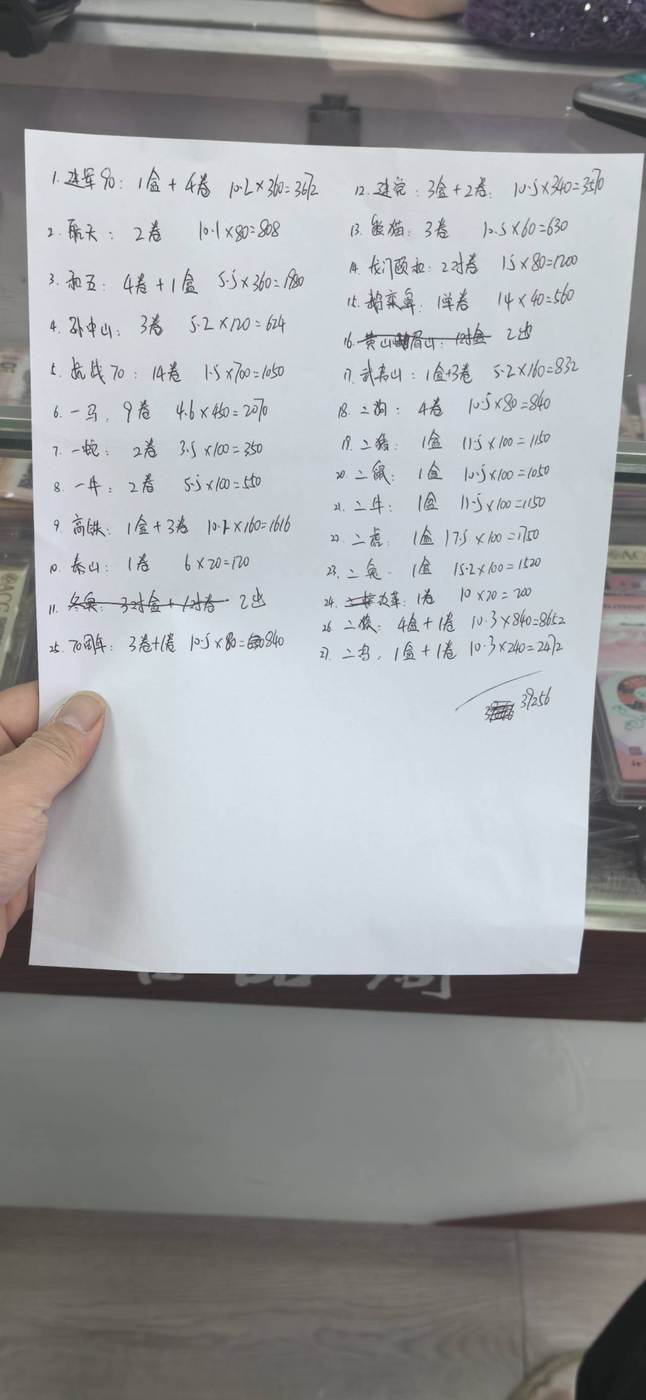 1. 建军90: 1盒 + 4卷 10.2×360=3672
2. 航天: 2卷 10.1×80=808
3. 和五: 4卷 + 1盒 5.5×360=1980
4. 孙中山: 3卷 5.2×120=624
5. 抗战70: 14卷 1.5×700=1050
6. 一马, 9卷 4.6×450=2070
7. 一蛇: 2卷 3.5×100=350
8. 一牛: 2卷 5.5×100=550
9. 高铁: 1盒 + 3卷 10.1×160=1616
10. 泰山: 1卷 6×20=120
11. 冬奥: 3对盒 + 1对卷 已出
25. 70周年: 3卷+1卷 10.5×80=840
12. 建党: 3盒 + 2卷: 10.5×340=3570
13. 熊猫: 3卷 10.5×60=630
14. 龙门颐和: 2对卷 15×80=1200
15. 1单卷 14×40=560
16. 黄山峨眉山: 1对盒 已出
17. 武夷山: 1盒+3卷 5.2×160=832
18. 二狗: 4卷 10.5×80=840
19. 二猪: 1盒 11.5×100=1150
20. 二鼠: 1盒 10.5×100=1050
21. 二牛: 1盒 11.5×100=1150
22. 二虎: 1盒 17.5×100=1750
23. 二兔: 1盒 15.2×100=1520
24. 改革: 1卷 10×20=200
26. 二猴: 4盒 + 1卷 10.3×840=8652
27. 二鸡, 1盒 + 1卷 10.3×240=2472
39256